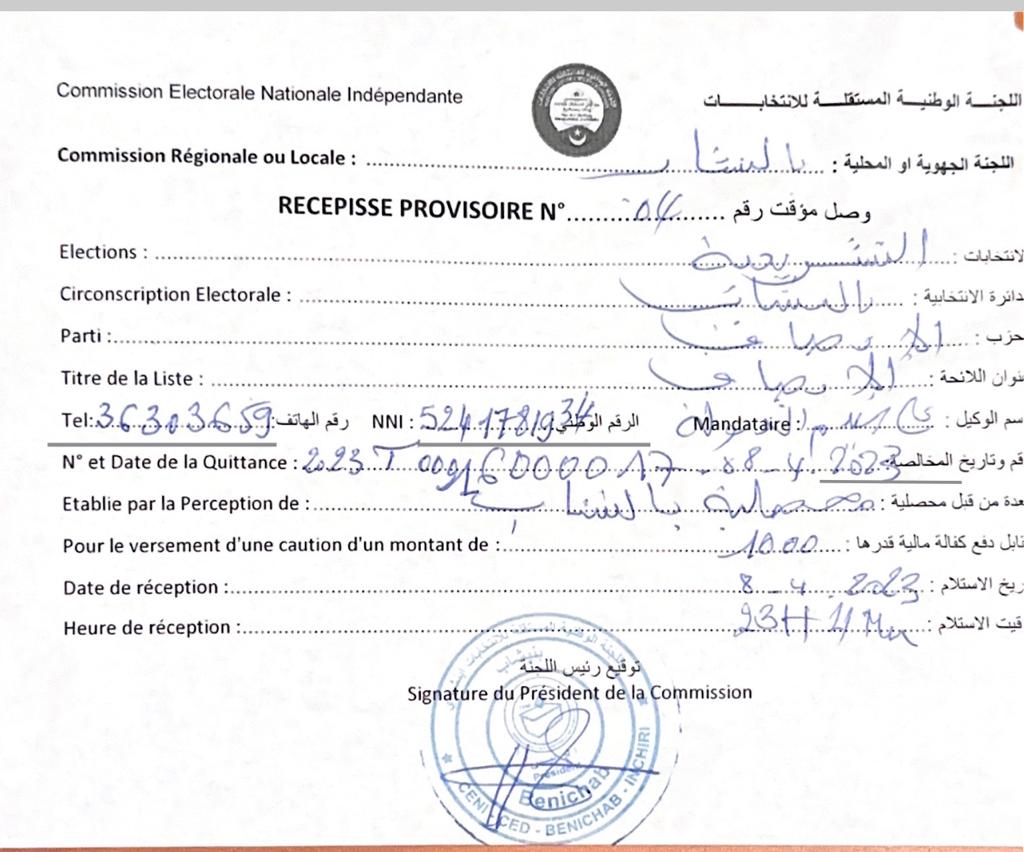 Commission Electorale Nationale Indépendante اللجنـــة الوطنيـــة المستقلـــة للانتخابـــــات
Commission Régionale ou Locale : اللجنة الجهوية او المحلية : بالنشاب
RECEPISSE PROVISOIRE N° 04 وصل مؤقت رقم
Elections : لانتخابات : التشريعية
Circonscription Electorale : دائرة الانتخابية : بالنشاب
Parti : حزب : الإنصاف
Titre de la Liste : نوان اللائحة : الإنصاف
Tel: 36303659 رقم الهاتف: NNI : الرقم الوطني Mandataire : سم الوكيل :
N° et Date de la Quittance : 8-4-2023 قم وتاريخ المخالصة
Etablie par la Perception de : عدة من قبل محصلية : محصلية بالنشاب
Pour le versement d'une caution d'un montant de : 1000 نابل دفع كفالة مالية قدرها :
Date de réception : 8-4-2023 ريخ الاستلام :
Heure de réception : 23H قيت الاستلام :
توقيع رئيس اللجنة
Signature du Président de la Commission
Président
Benichab
CED - BENICHAB - INCHIRI